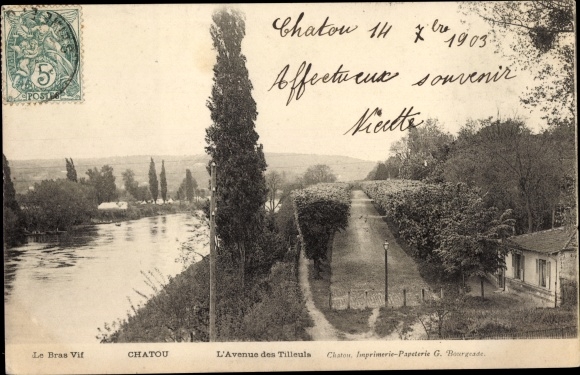 Chatou 14 Xbre 1903
Affectueux souvenir
5
POSTES
Le Bras Vif
CHATOU
L'Avenue des Tilleuls
Chatou, Imprimerie-Papeterie G. Bourgeade.